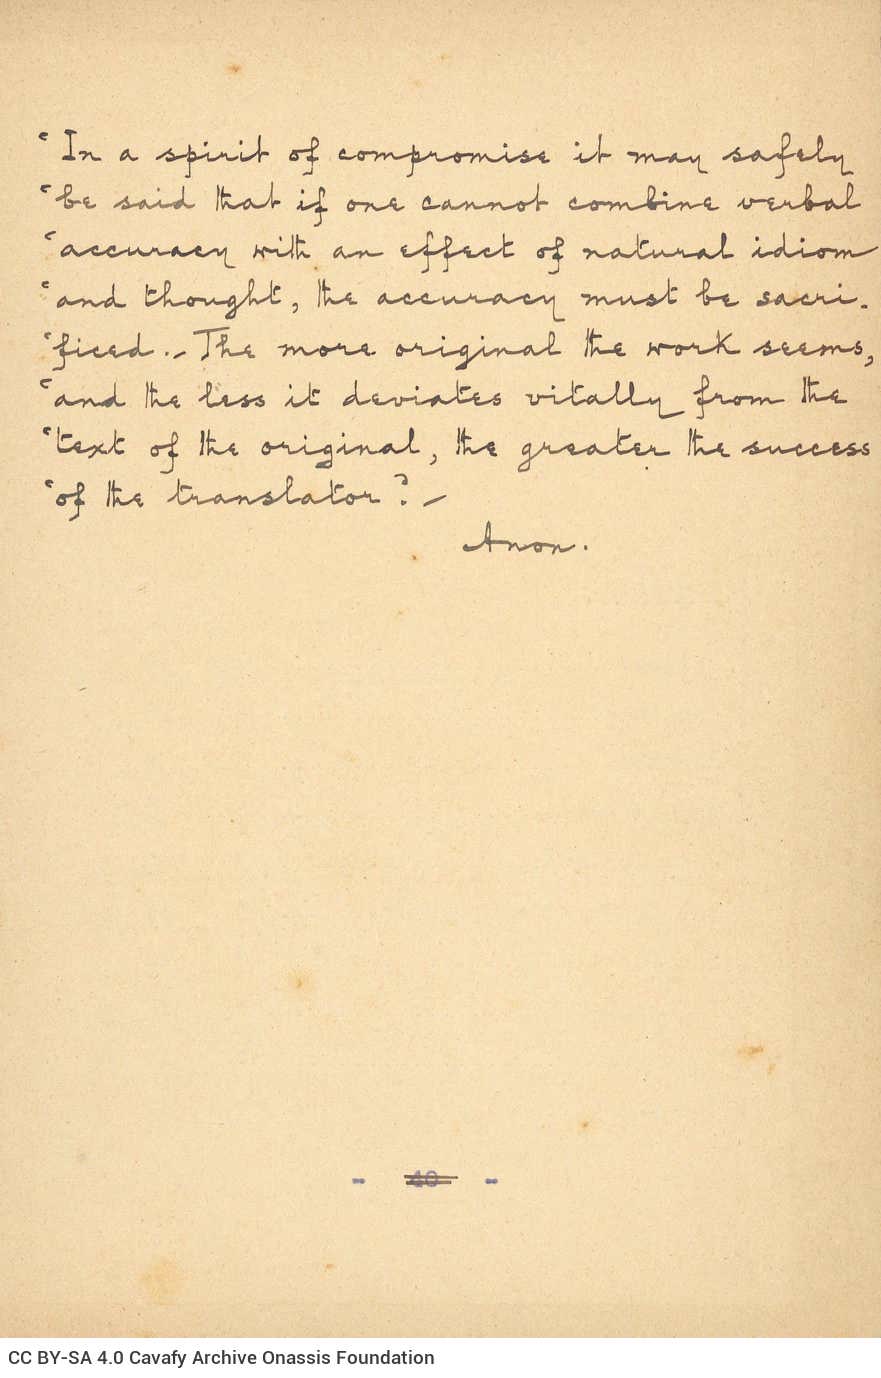 ‘In a spirit of compromise it may safely
‘be said that if one cannot combine verbal
‘accuracy with an effect of natural idiom
‘and thought, the accuracy must be sacri-
‘ficed.– The more original the work seems,
‘and the less it deviates vitally from the
‘text of the original, the greater the success
‘of the translator’.–
Anon.
- 40 -
CC BY-SA 4.0 Cavafy Archive Onassis Foundation